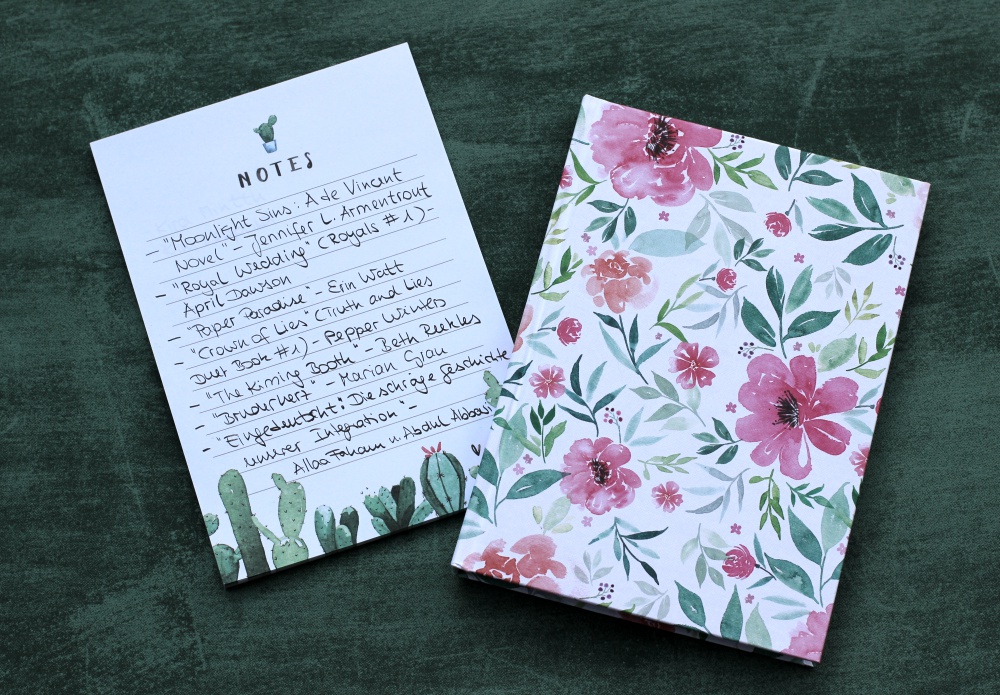 NOTES
- "Moonlight Sins: A de Vincent
Novel" - Jennifer L. Armentrout
- "Royal Wedding" (Royals #1) -
April Dawson
- "Paper Paradise" - Erin Watt
- "Crown of Lies" (Truth and Lies
Duet Book #1) - Pepper Winters
- "The Kissing Booth" - Beth Reekles
- "Bruderherz" - Marian Grau
- "Eingedeutscht: Die schräge Geschichte
unserer Integration" -
Allaa Faham u. Abdul Abbasi